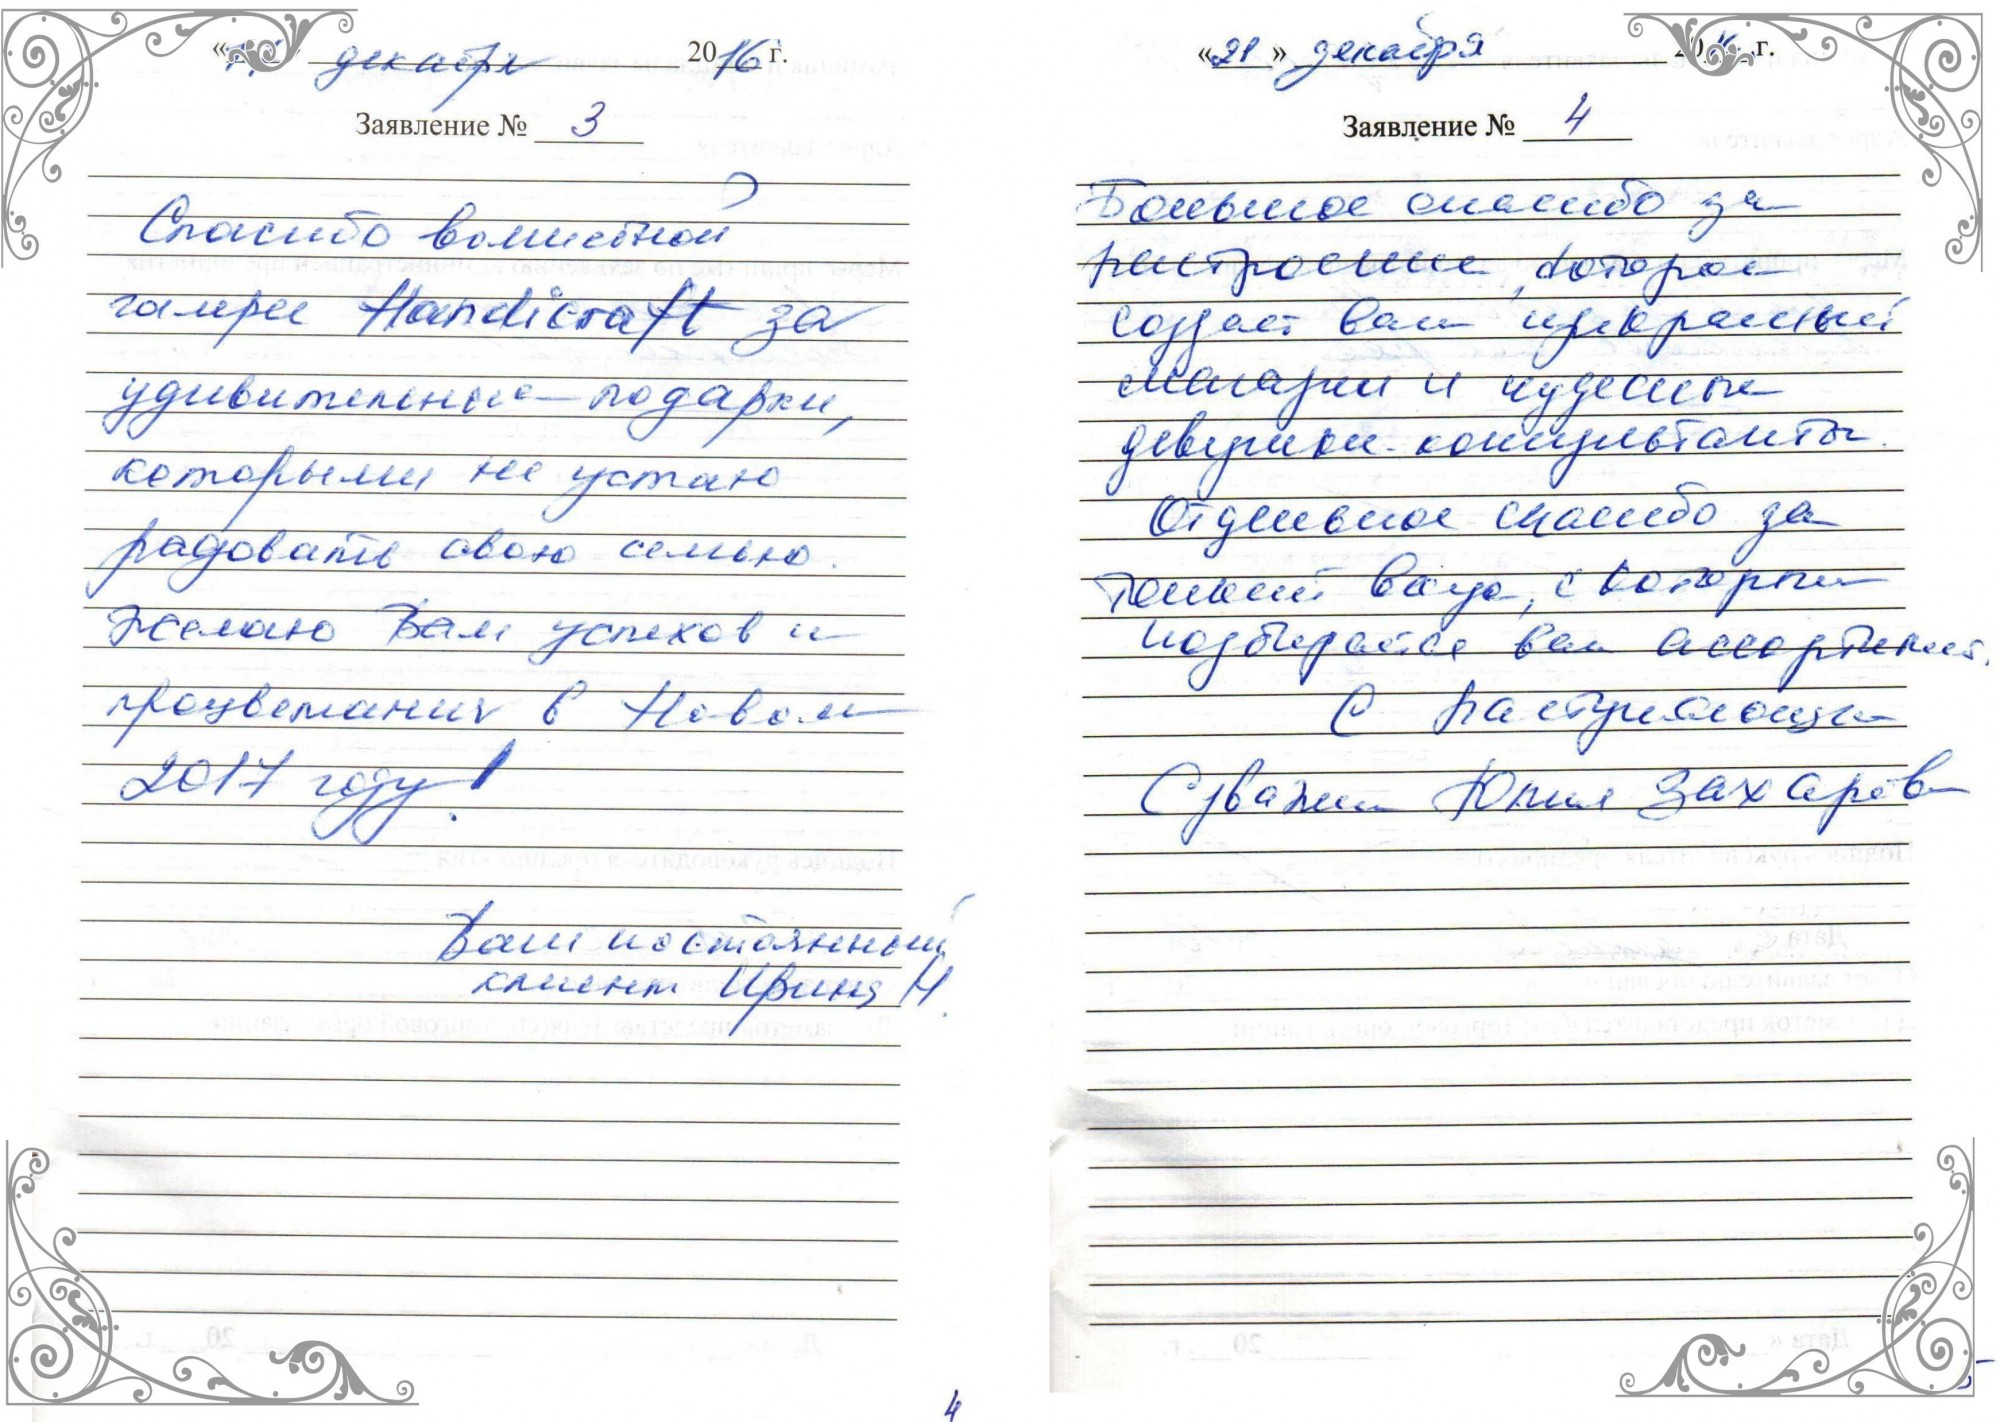 « » декабря 2016 г.
Заявление № 3
Спасибо волшебной
галерее Handicraft за
удивительные подарки,
которыми не устаю
радовать свою семью.
Желаю Вам успехов и
процветания в Новом
2017 году!
Ваш постоянный
клиент Ирина Н.
4
«21» декабря 20 г.
Заявление № 4
Большое спасибо за
настроение, которое
создает ваш прекрасный
магазин и чудесные
девушки-консультанты.
Отдельное спасибо за
тонкий вкус, с которым
подбирается ваш ассортимент.
С наступающим
С уважен Юлия Захарова